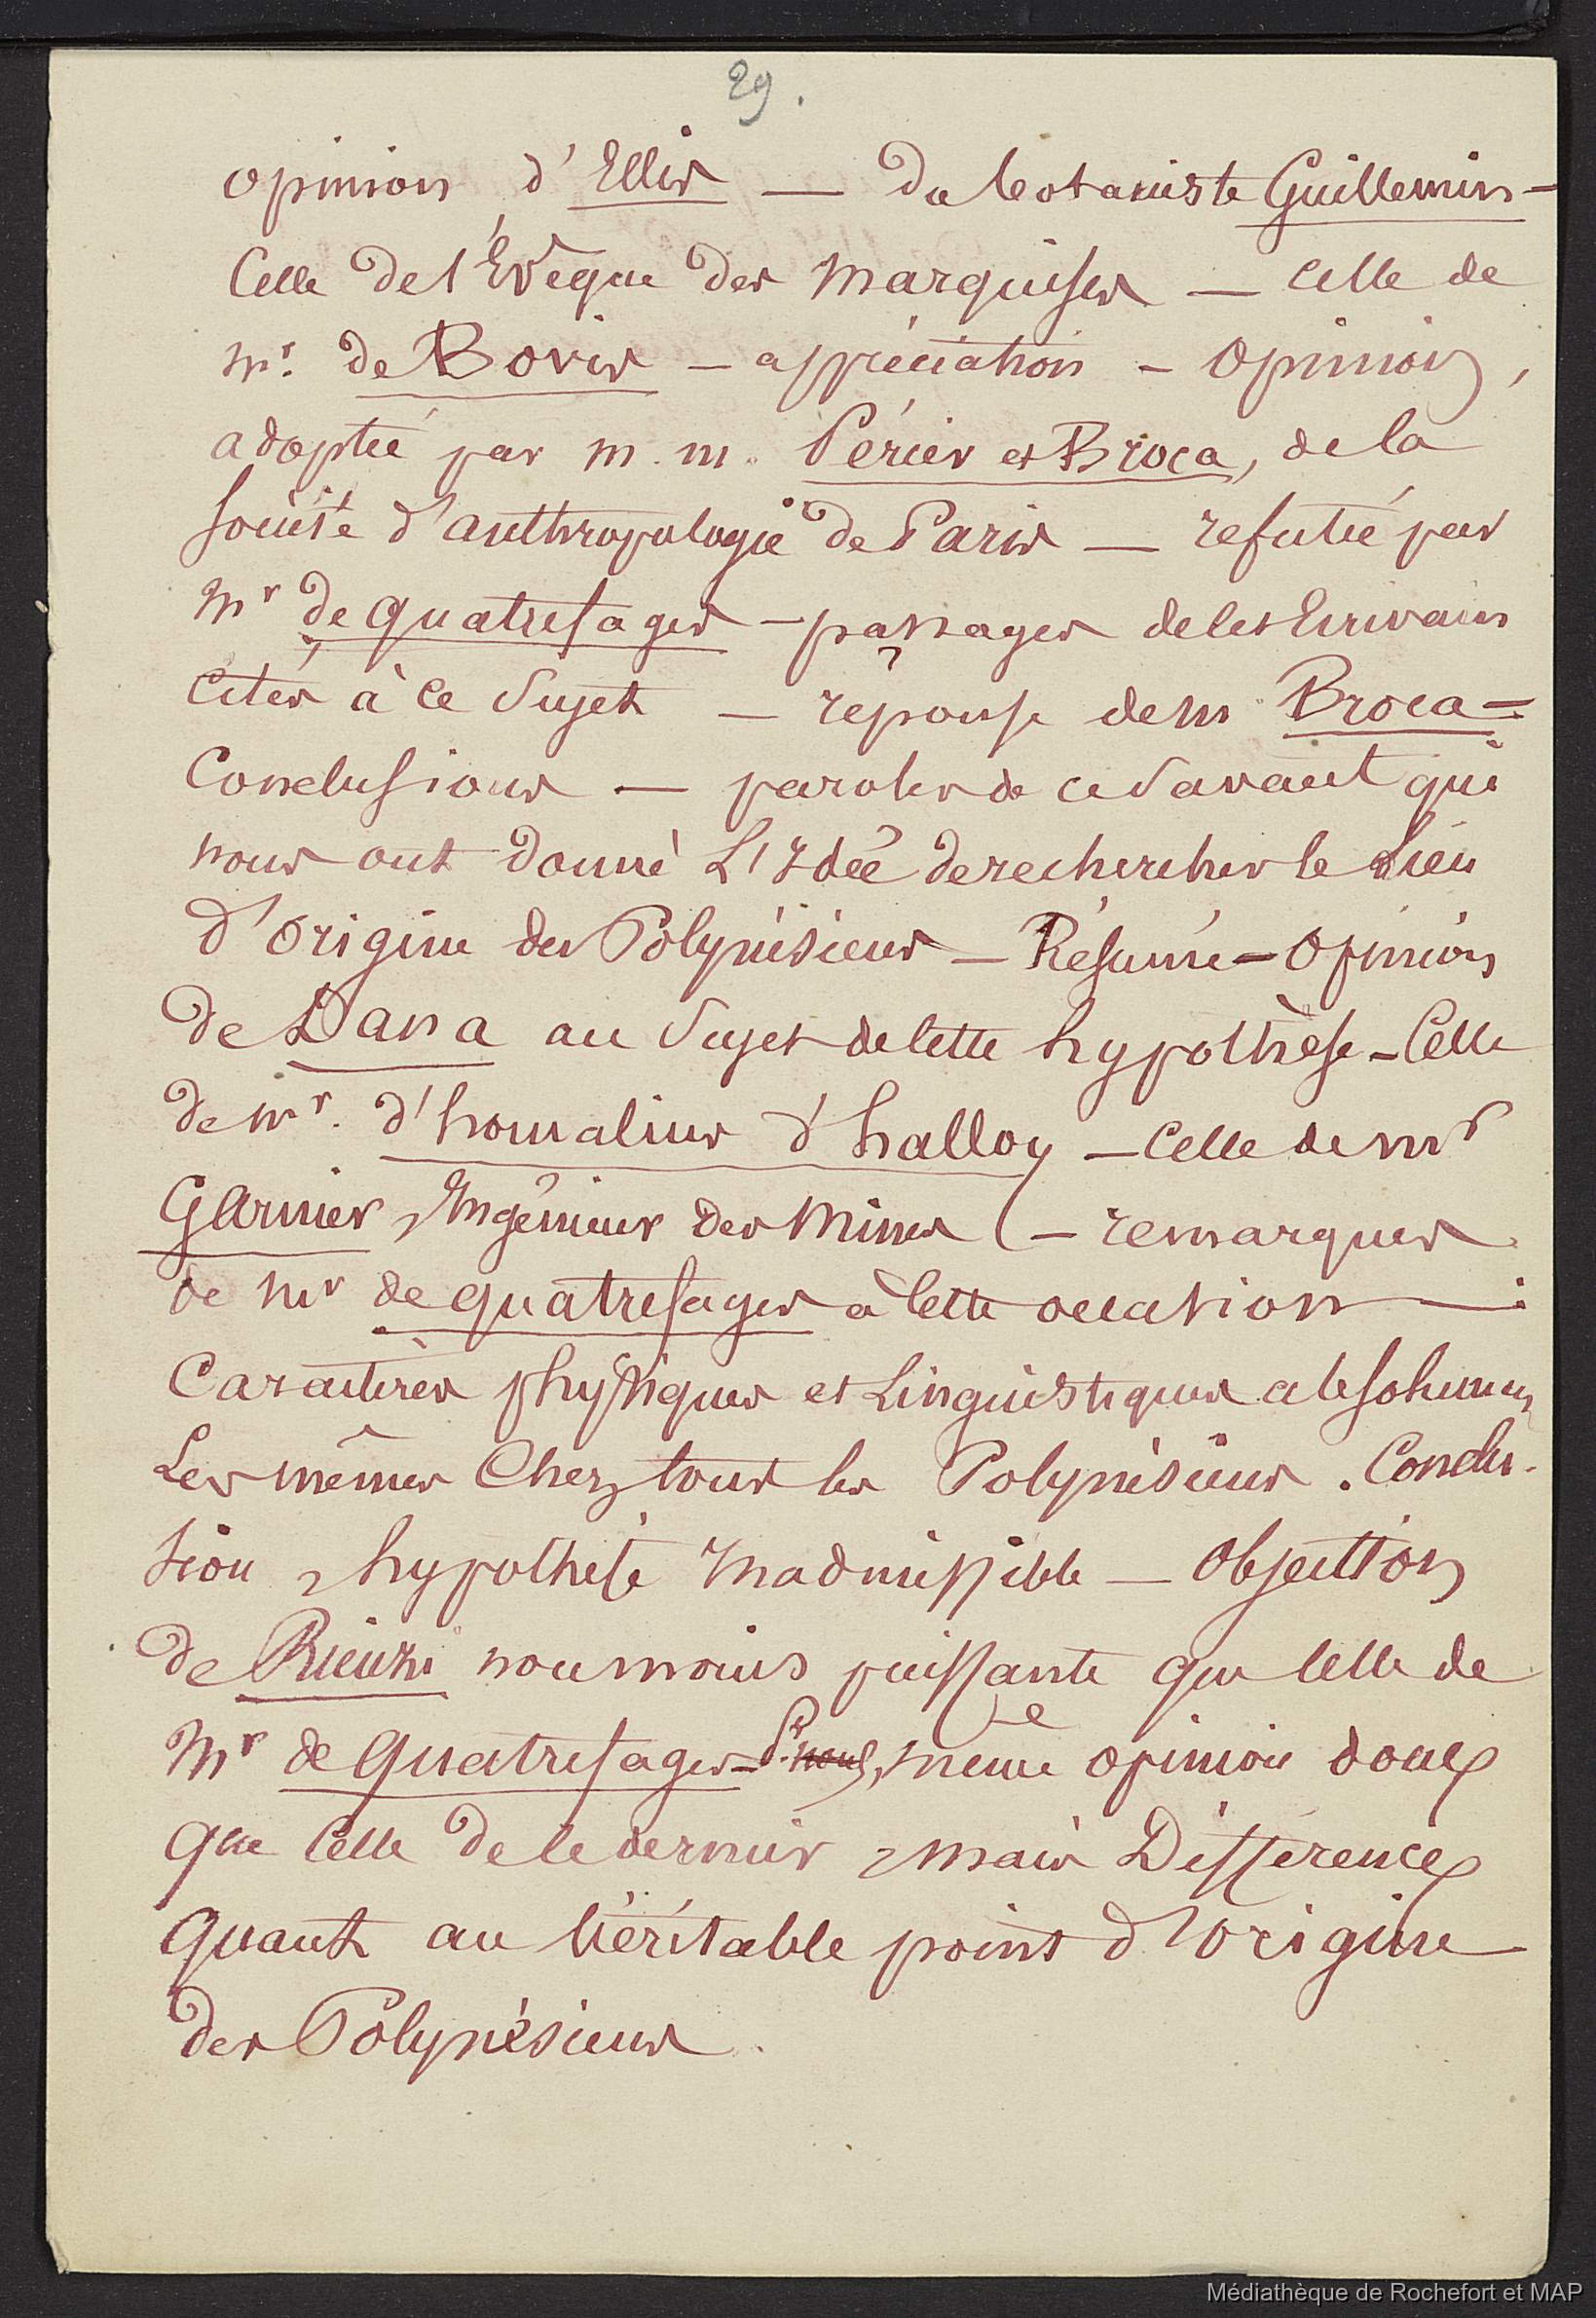 29.
opinion d'Ellis — Du botaniste Guillemin —
Celle de l'Evêque des Marquises — celle de
Mr. de Bovis — appréciation — Opinion,
adoptée par M.M. Périer et Broca, de la
Société d'anthropologie de Paris — refutée par
Mr de Quatrefages — passages de ces Ecrivains
Cités à ce Sujet — réponse de M. Broca =
Conclusions — paroles de ce Savant qui
nous ont donné L'Idée de rechercher le Lieu
d'Origine des Polynésiens — Résumé — Opinion
de Dana au Sujet de cette hypothèse — Celle
de Mr. d'homalius d'halloy — Celle de Mr
Garnier, Ingénieur des Mines — remarques
de Mr de Quatrefages à cette occasion — :
Caractères physiques et Linguistiques absolument
Les mêmes Chez tous les Polynésiens. Conclu-
sion, hypothèse Inadmissible — Objection
de Rienzi non moins puissante que Celle de
Mr de Quatrefages = même opinion donc
que Celle de ce dernier, mais Différence
Quant au Véritable point d'Origine
des Polynésiens.
Médiathèque de Rochefort et MAP